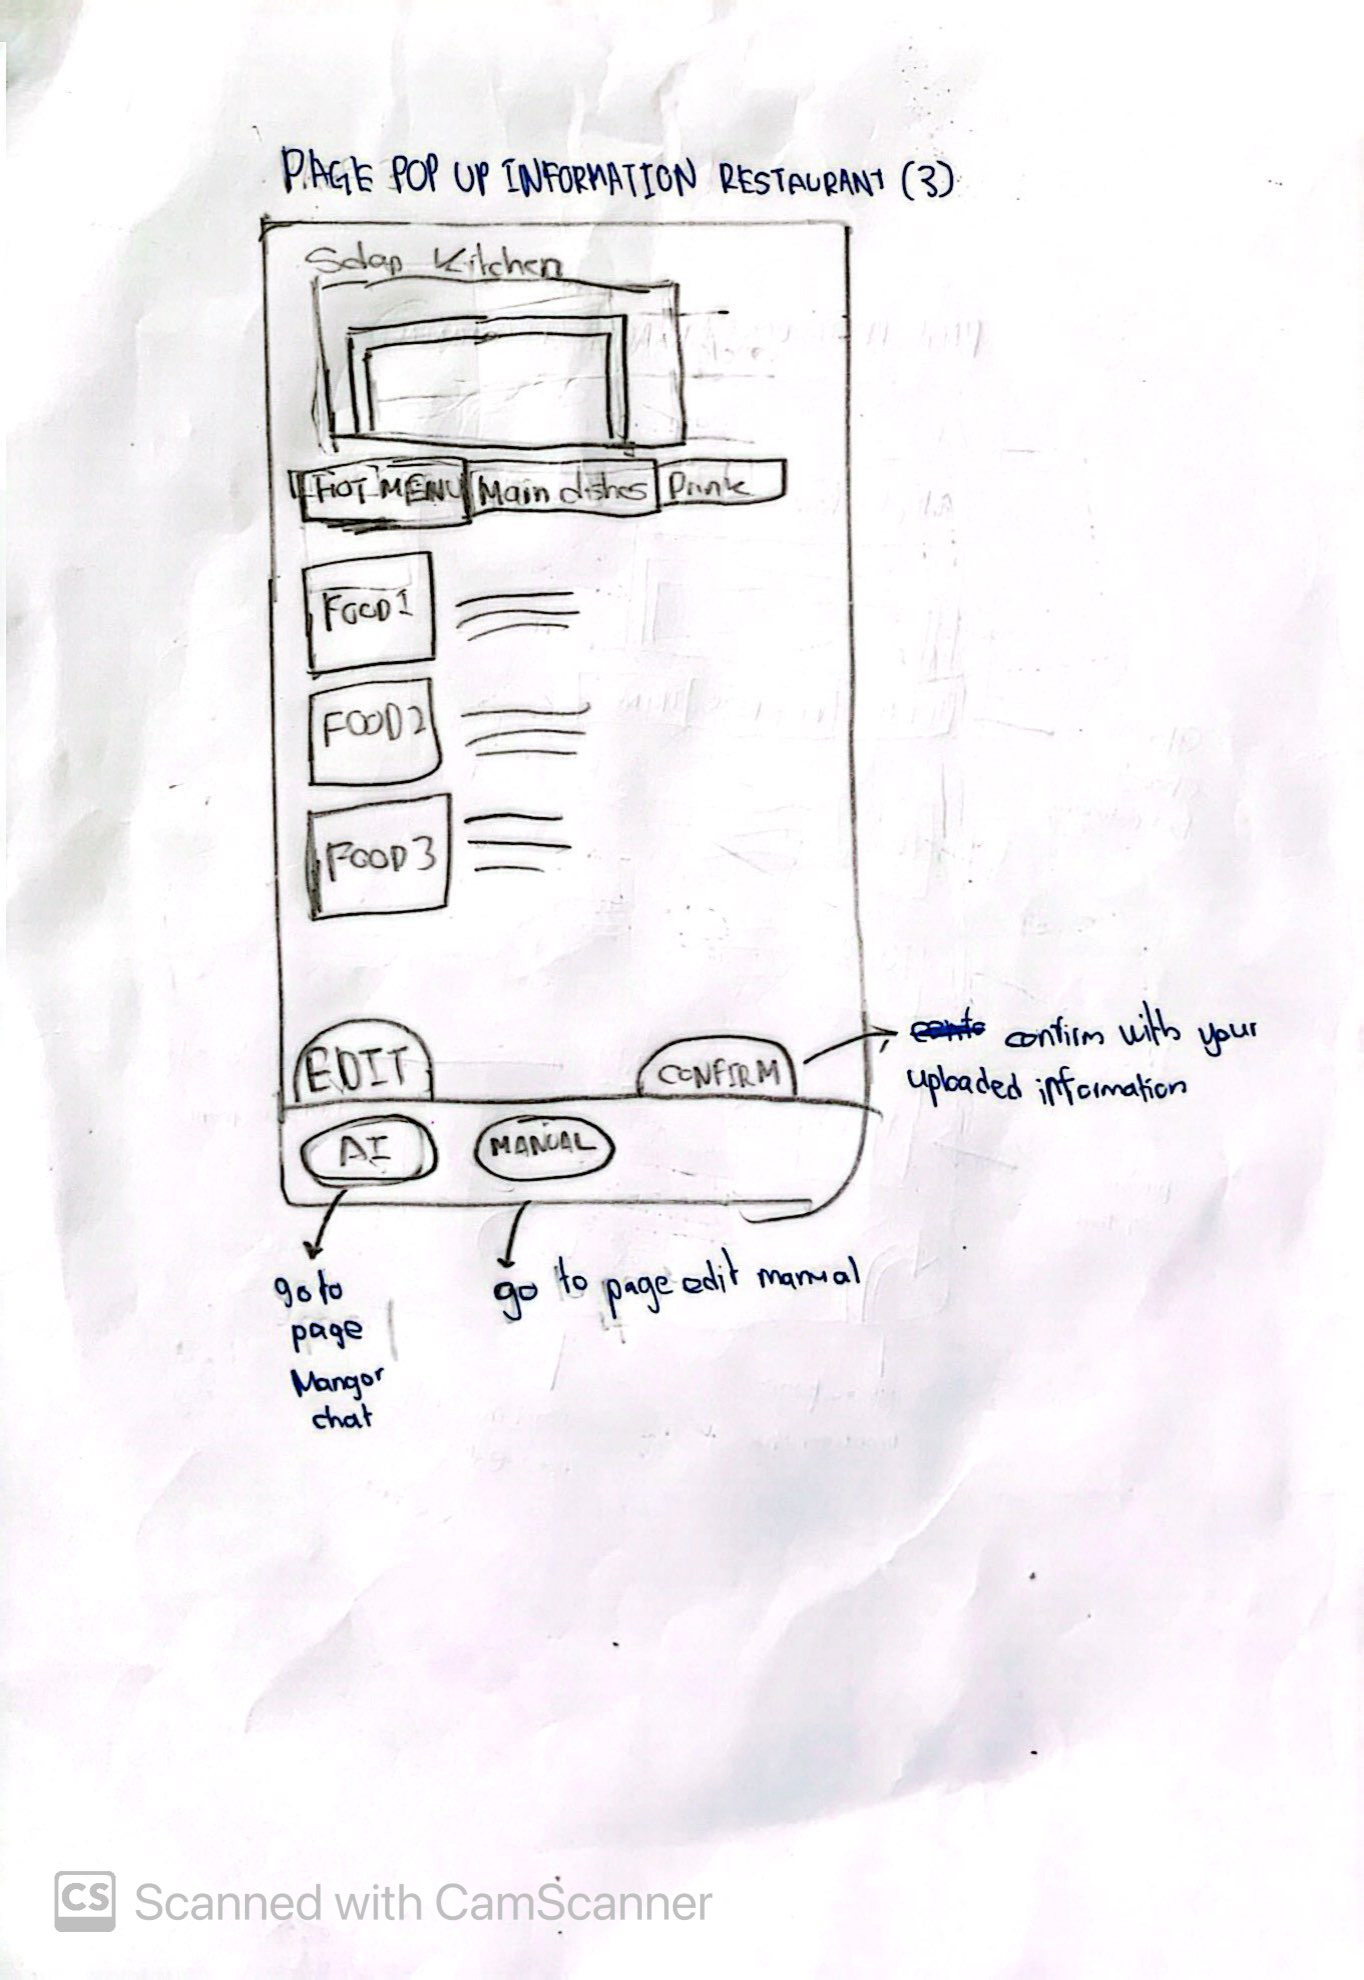 PAGE POP UP INFORMATION RESTAURANT (3)
Sdap Kitchen
HOT MENU Main dishes Drink
FOOD 1
FOOD 2
FOOD 3
EDIT CONFIRM
confirm with your
uploaded information
AI MANUAL
go to
page
Mangor
chat
go to page edit manual
CS Scanned with CamScanner